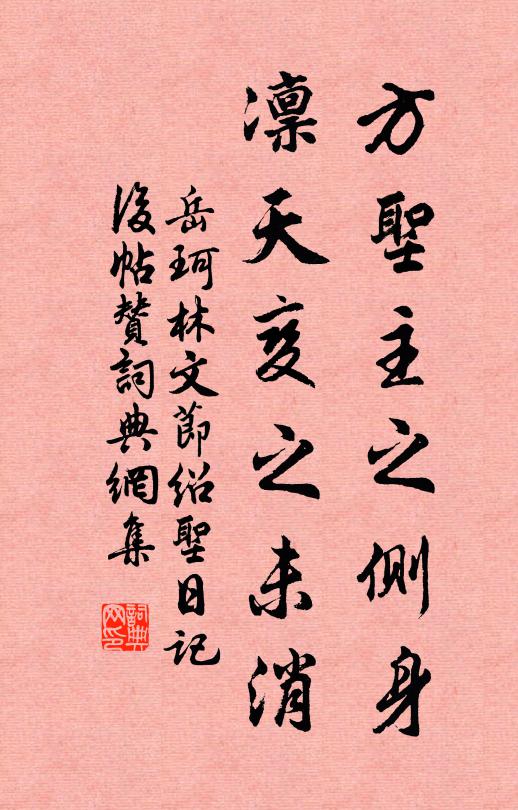 方聖主之側身
凛天变之未消
岳珂林文節紹聖日記
後帖贊詞典網集
詞典网印